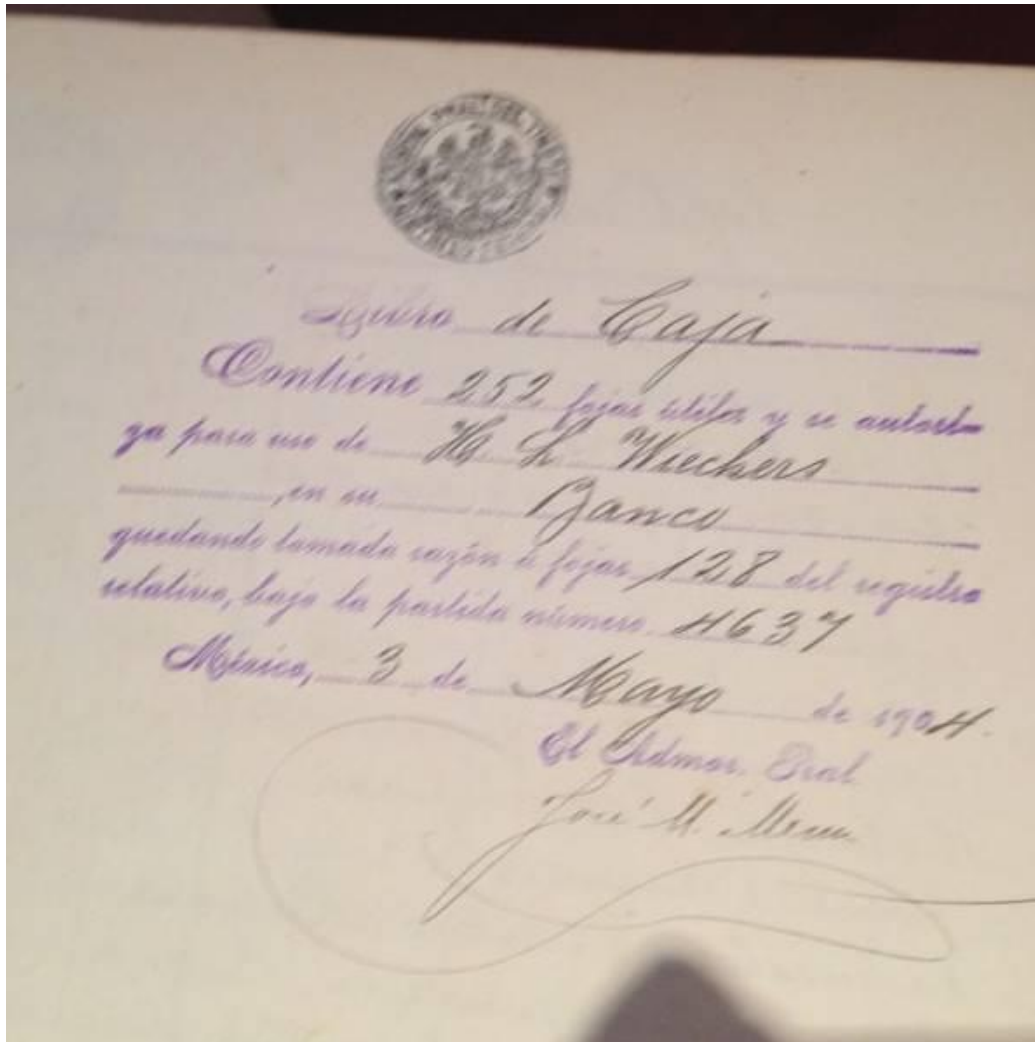 Libro de Caja
Contiene 252 fojas útiles y se autori-
za para uso de H. L. Wiechers
, en su Banco
quedando tomada razón á fojas 128 del registro
relativo, bajo la partida número 4637
México, 3 de Mayo de 1904.
El Admor. Pral.
José M.